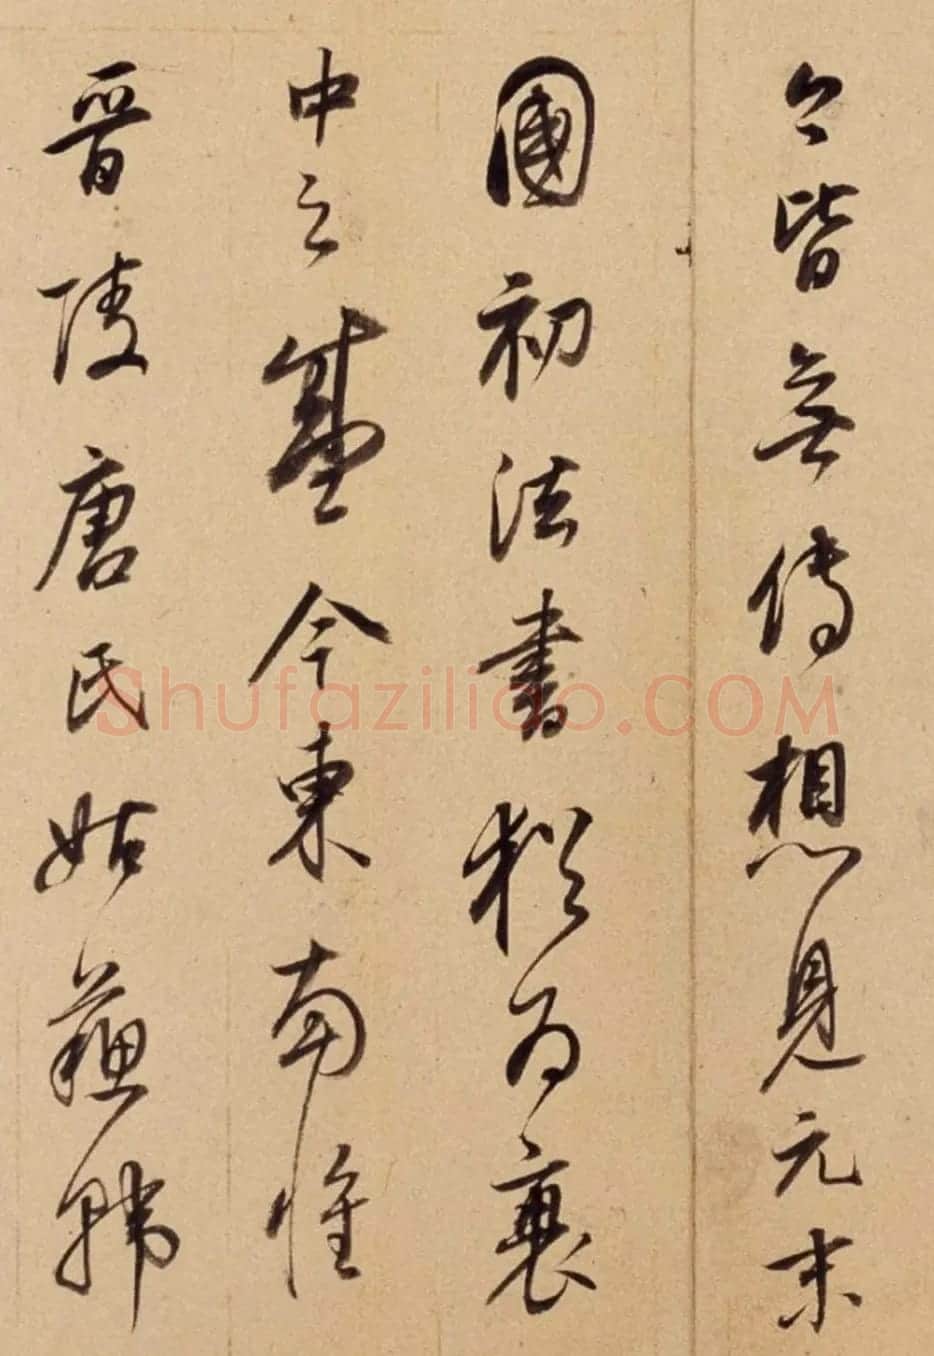 今皆無傳想見元末
國初法書猶為衰
中之盛今東南惟
晉陵唐氏姑蘇韓
Shufaziliao.COM